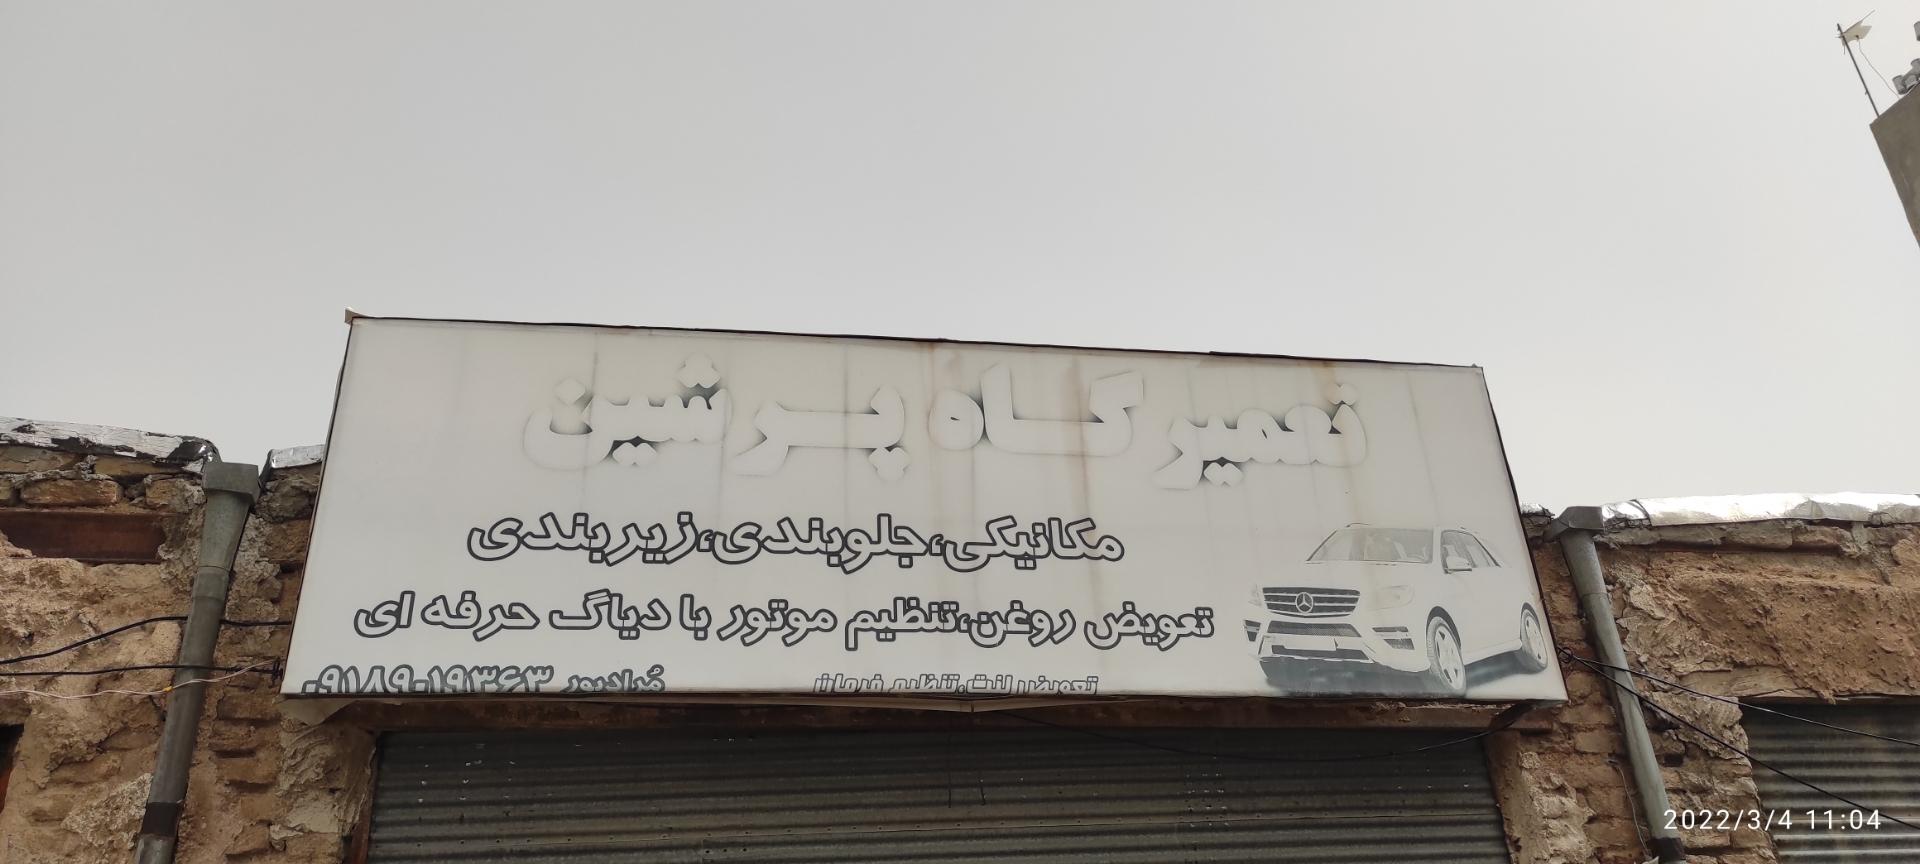 تعمیرگاه پرشین
مکانیکی،جلوبندی،زیربندی
تعویض روغن،تنظیم موتور با دیاگ حرفه ای
تعویض لنت،تنظیم فرمان
مُرادپور ۰۹۱۸۹۰۱۹۳۶۳
2022/3/4 11:04